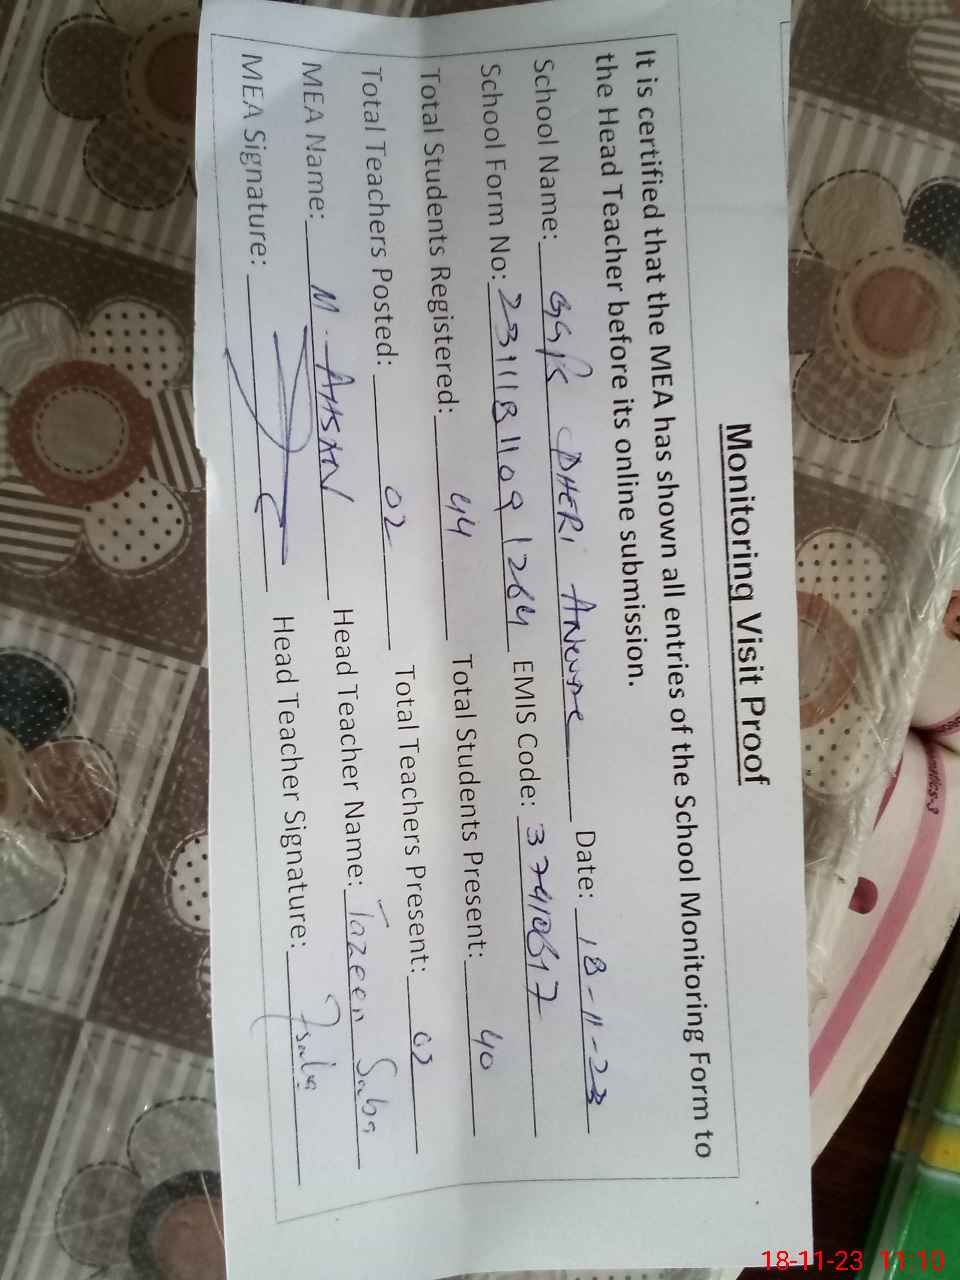 Monitoring Visit Proof
It is certified that the MEA has shown all entries of the School Monitoring Form to
the Head Teacher before its online submission.
School Name: GGPS DHERI Date: 18-11-23
School Form No: 231118 1109 1264 EMIS Code: 37410617
Total Students Registered: 44 Total Students Present: 40
Total Teachers Posted: 02 Total Teachers Present: 02
MEA Name: M. AHSAN Head Teacher Name: Tazeen Saba
MEA Signature: Head Teacher Signature: Tsaba
18-11-23 11:10